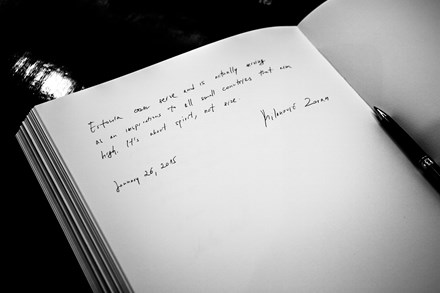 Estonia can serve and is actually serving
as an inspiration to all small countries that aim
high. It's about spirit, not size.
Milanović Zoran
January 26, 2015